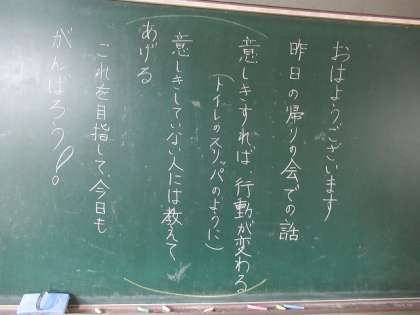 おはようございます
昨日の帰りの会での話
意しきすれば、行動が変わる
(トイレのスリッパのように)
意しきしていない人には教えて
あげる
これを目指して、今日も
がんばろう!